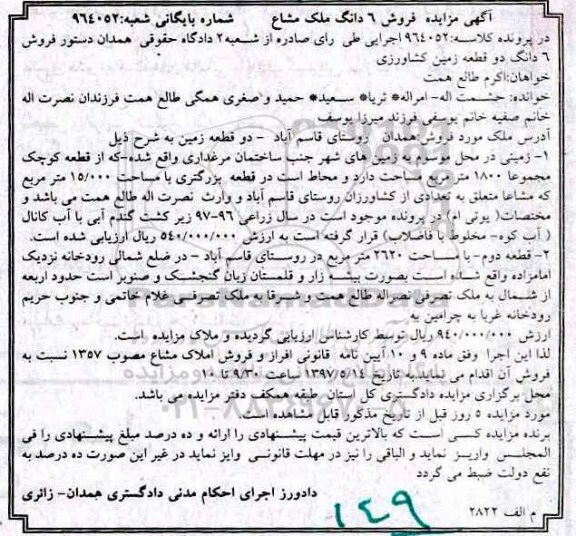 آگهی مزایده فروش ۶ دانگ ملک مشاع شماره بایگانی شعبه:۹۶۴۰۵۲
در پرونده کلاسه:۹۶۴۰۵۲ اجرایی طی رای صادره از شعبه۲ دادگاه حقوقی همدان دستور فروش
۶ دانگ دو قطعه زمین کشاورزی
خواهان:اکرم طالع همت
خوانده: حشمت اله- امراله* ثریا* سعید* حمید و صغری همگی طالع همت فرزندان نصرت اله
خانم صفیه خانم یوسفی فرزند میرزا یوسف
آدرس ملک مورد فروش:همدان روستای قاسم آباد - دو قطعه زمین به شرح ذیل
۱- زمینی در محل موسوم به زمین های شهر جنب ساختمان مرغداری واقع شده-که از قطعه کوچک
مجموعا ۱۸۰۰ متر مربع مساحت دارد و محاط است در قطعه بزرگتری با مساحت ۱۵/۰۰۰ متر مربع
که مشاعا متعلق به تعدادی از کشاورزان روستای قاسم آباد و وارث نصرت اله طالع همت می باشد و
مختصات( یوتی ام) در پرونده موجود است در سال زراعی ۹۶-۹۷ زیر کشت گندم آبی با آب کانال
( آب کوه- مخلوط با فاضلاب) قرار گرفته است به ارزش ۵۴۰/۰۰۰/۰۰۰ ریال ارزیابی شده است.
۲- قطعه دوم- با مساحت ۲۶۲۰ متر مربع در روستای قاسم آباد - در ضلع شمالی رودخانه نزدیک
امامزاده واقع شده است بصورت بیشه زار و قلمستان زبان گنجشک و صنوبر است حدود اربعه
از شمال به ملک تصرفی نصراله طالع همت و شرقا به ملک تصرفی غلام خاتمی و جنوب حریم
رودخانه غربا به چرامین به
ارزش ۹۴۰/۰۰۰/۰۰۰ ریال توسط کارشناس ارزیابی گردیده و ملاک مزایده است.
لذا این اجرا وفق ماده ۹ و ۱۰ آیین نامه قانونی افراز و فروش املاک مشاع مصوب ۱۳۵۷ نسبت به
فروش آن اقدام می نماید.به تاریخ ۱۳۹۷/۵/۱۴ ساعت ۹/۳۰ تا ۱۰
محل برگزاری مزایده دادگستری کل استان طبقه همکف دفتر مزایده می باشد.
مورد مزایده ۵ روز قبل از تاریخ مذکور قابل مشاهده است.
برنده مزایده کسی است که بالاترین قیمت پیشنهادی را ارائه و ده درصد مبلغ پیشنهادی را فی
المجلس واریز نماید و الباقی را نیز در مهلت قانونی وایز نماید در غیر این صورت ده درصد به
نفع دولت ضبط می گردد
دادورز اجرای احکام مدنی دادگستری همدان- زائری
م الف ۲۸۲۲
۱۴۹